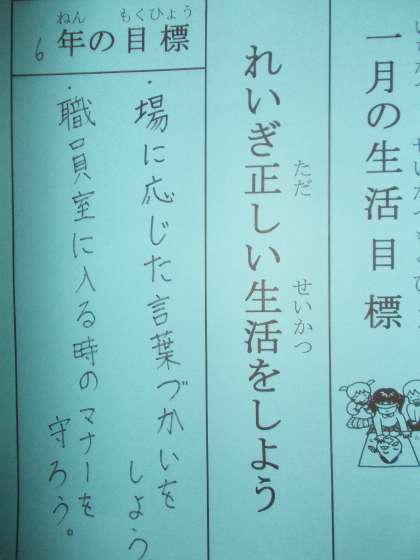 一月の生活目標
れいぎ正しい生活をしよう
ただ
せいかつ
6年の目標
ねん
もくひょう
・場に応じた言葉づかいを
しよう
・職員室に入る時のマナーを
守ろう。